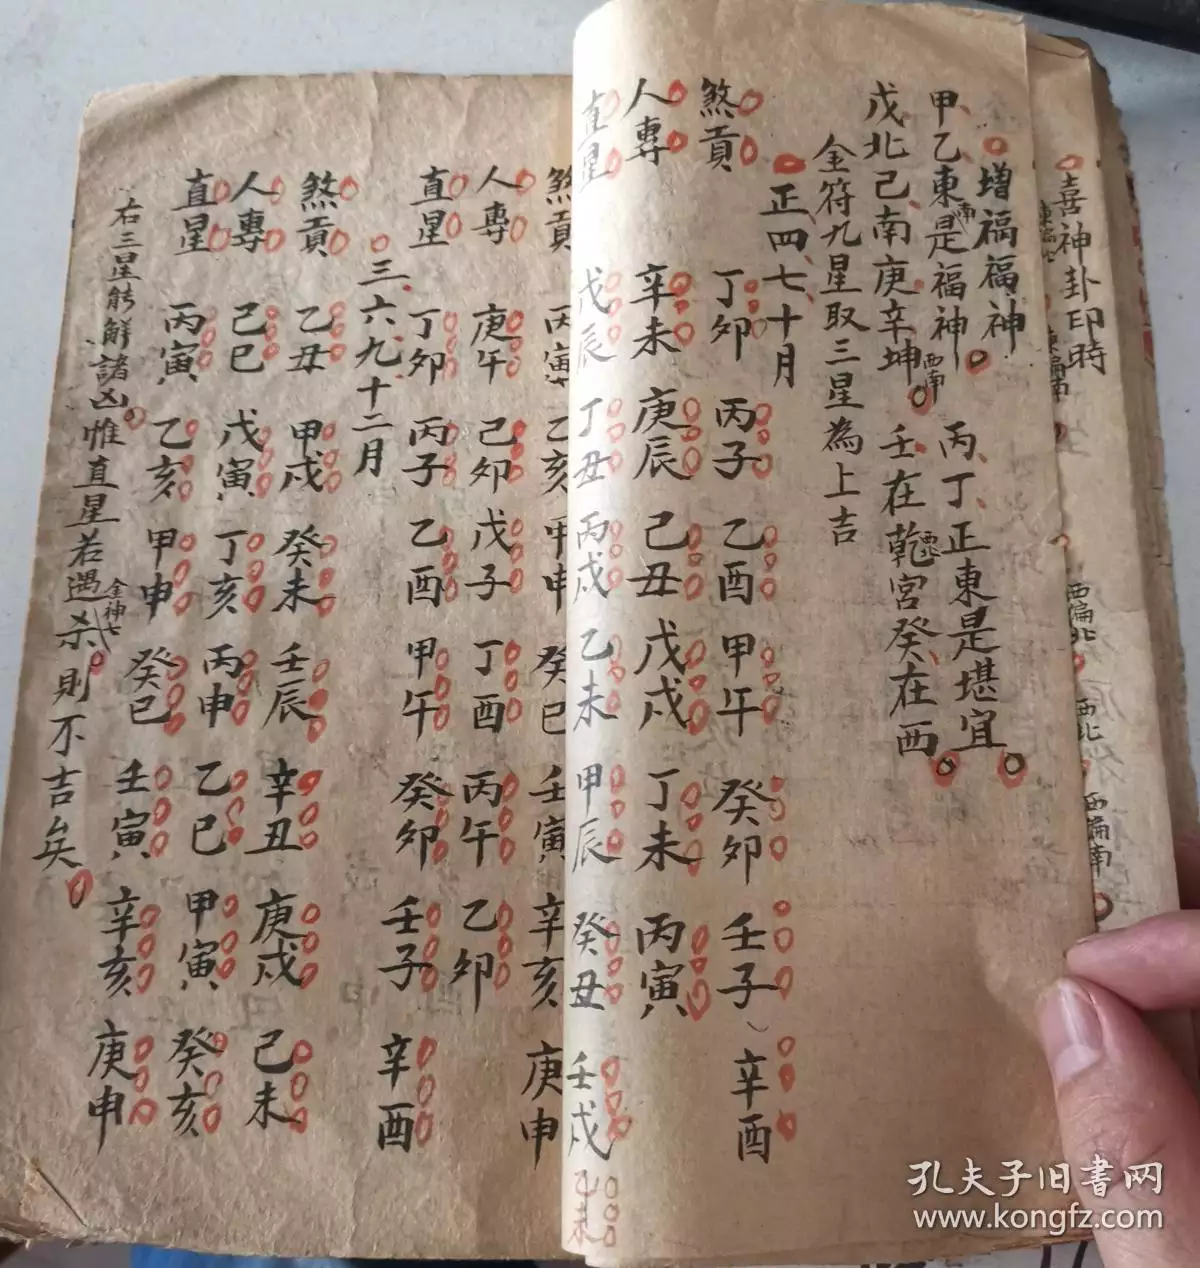 喜神卦印時
東偏南
西偏北
西北
西偏南
增福福神
甲乙東南是福神丙丁正東是堪宜
戊北己南庚辛坤西南壬在乾西北宮癸在西
金符九星取三星為上吉
正四七十月
煞貢 丁卯 丙子 乙酉 甲午 癸卯 壬子 辛酉
人專 辛未 庚辰 己丑 戊戌 丁未 丙寅
直星 戊辰 丁丑 丙戌 乙未 甲辰 癸丑 壬戌
乙未
煞貢 丙寅 乙亥 甲申 癸巳 壬寅 辛亥 庚申
人專 庚午 己卯 戊子 丁酉 丙午 乙卯
直星 丁卯 丙子 乙酉 甲午 癸卯 壬子 辛酉
三六九十二月
煞貢 乙丑 甲戌 癸未 壬辰 辛丑 庚戌 己未
人專 己巳 戊寅 丁亥 丙申 乙巳 甲寅 癸亥
直星 丙寅 乙亥 甲申 癸巳 壬寅 辛亥 庚申
右三星能解諸凶惟直星若遇金神七杀則不吉矣
孔夫子旧書网
www.kongfz.com